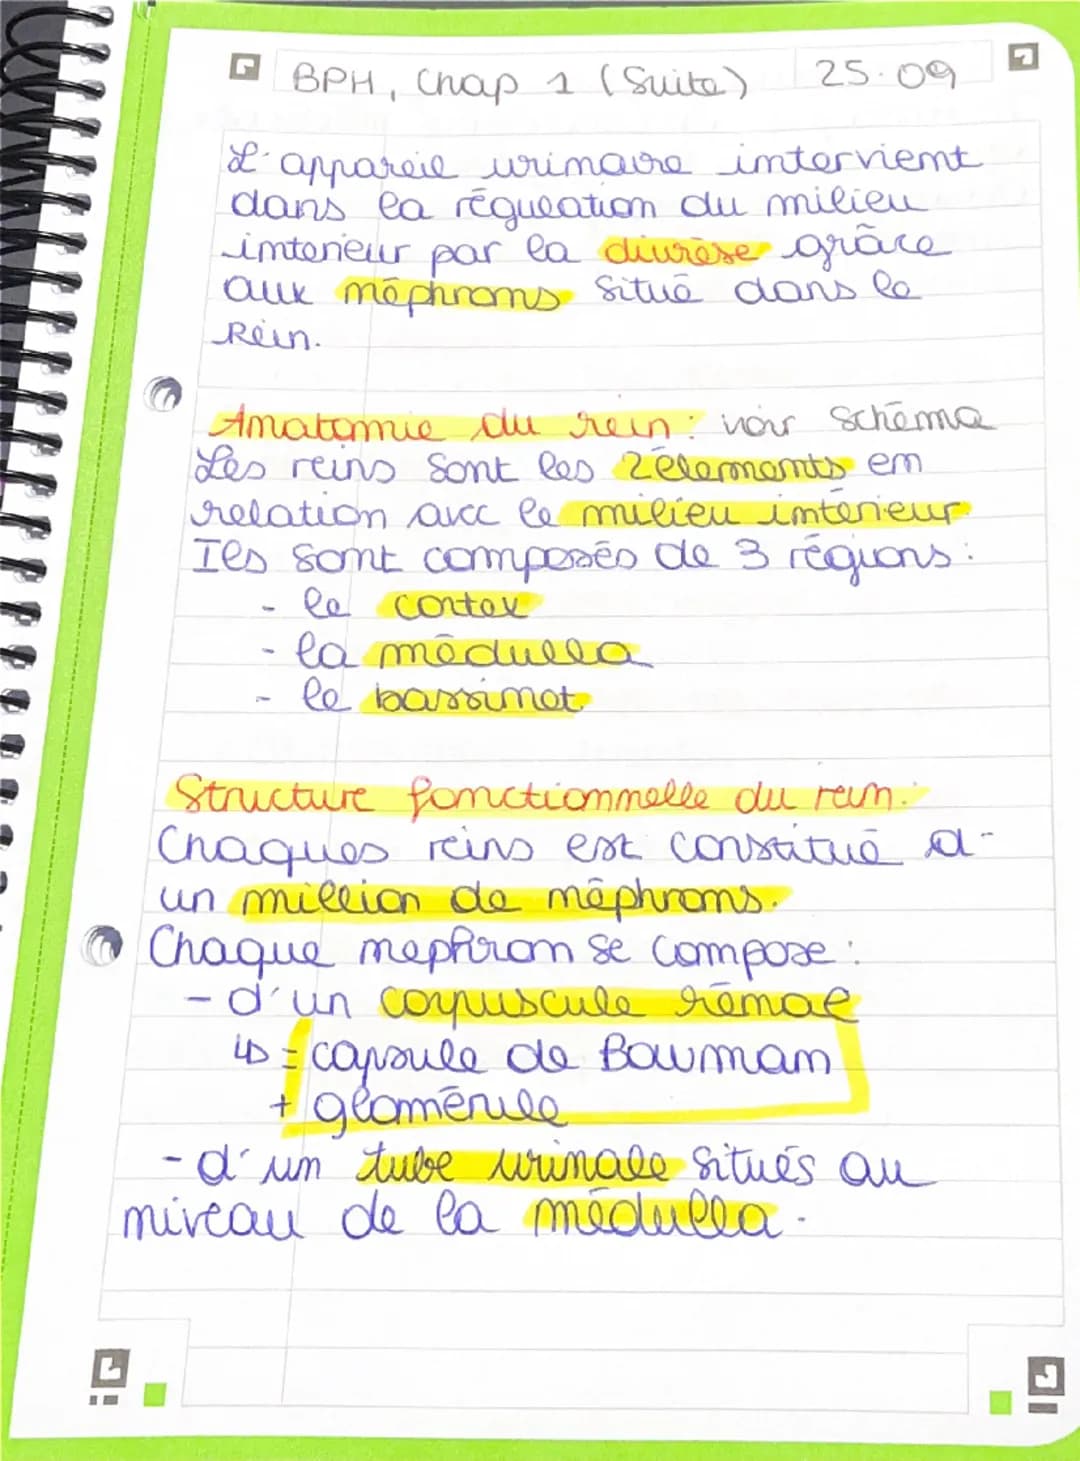 BPH, Chap 1 (Suite) 25.09
L'appareil urinaire intervient
dans la régulation du milieu
interieur par la diurèse grâce
aux néphrons situé dans le
Rein.
Anatomie du rein : voir schéma
Les reins sont les 2 élements en
relation avec le milieu intérieur
Ils sont composés de 3 régions :
- le cortex
- la médulla
- le bassinet.
Structure fonctionnelle du rein :
Chaques reins est constitué d'
un million de néphrons.
Chaque nephron se compose :
- d'un corpuscule rénal
↳ = capsule de Bowman
+ glomérule
- d'un tube urinale situés au
niveau de la médulla.